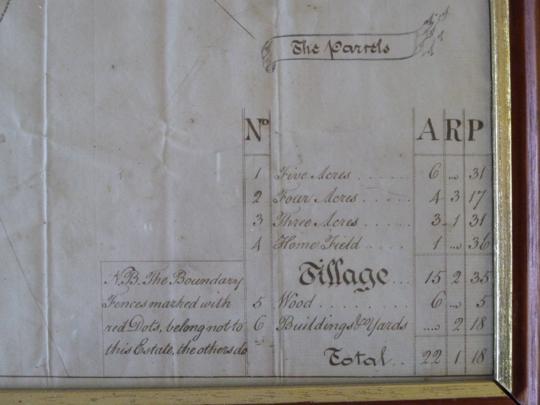 The Parcels
No. A R P
1 Five Acres ...... 6 ... 31
2 Four Acres ...... 4 3 17
3 Three Acres .... 3 1 31
4 Home Field .... 1 ... 36
Tillage ... 15 2 35
5 Wood ........ 6 ... 5
6 Buildings &c Yards .... 2 18
Total .. 22 1 18
N.B. The Boundary
Fences marked with
red Dots, belong not to
this Estate, the others do